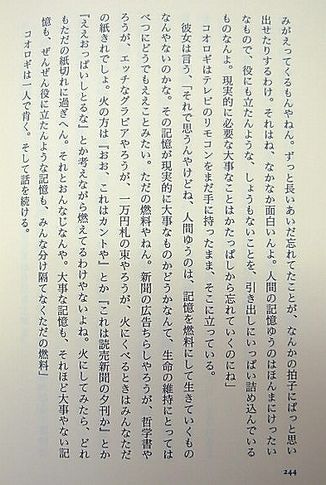 みがえってくるもんやねん。ずっと長いあいだ忘れてたことが、なんかの拍子にぱっと思い
出せたりするわけ。それはね、なかなか面白いんよ。人間の記憶ゆうのはほんまにけったい
なもので、役にも立たんような、しょうもないことを、引き出しにいっぱい詰め込んでいる
ものなんよ。現実的に必要な大事なことはかたっぱしから忘れていくのにね」
コオロギはテレビのリモコンをまだ手に持ったまま、そこに立っている。
彼女は言う、「それで思うんやけどね、人間ゆうのは、記憶を燃料にして生きていくもの
なんやないのかな。その記憶が現実的に大事なものかどうかなんて、生命の維持にとっては
べつにどうでもええことみたい。ただの燃料やねん。新聞の広告ちらしやろうが、哲学書や
ろうが、エッチなグラビアやろうが、一万円札の束やろうが、火にくべるときはみんなただ
の紙きれでしょ。火の方は『おお、これはカントや』とか『これは読売新聞の夕刊か』とか
『ええおっぱいしとるな』とか考えながら燃えてるわけやないよね。火にしてみたら、どれ
もただの紙切れに過ぎへん。それとおんなじなんや。大事な記憶も、それほど大事やない記
憶も、ぜんぜん役に立たんような記憶も、みんな分け隔てなくただの燃料」
コオロギは一人で肯く。そして話を続ける。
244